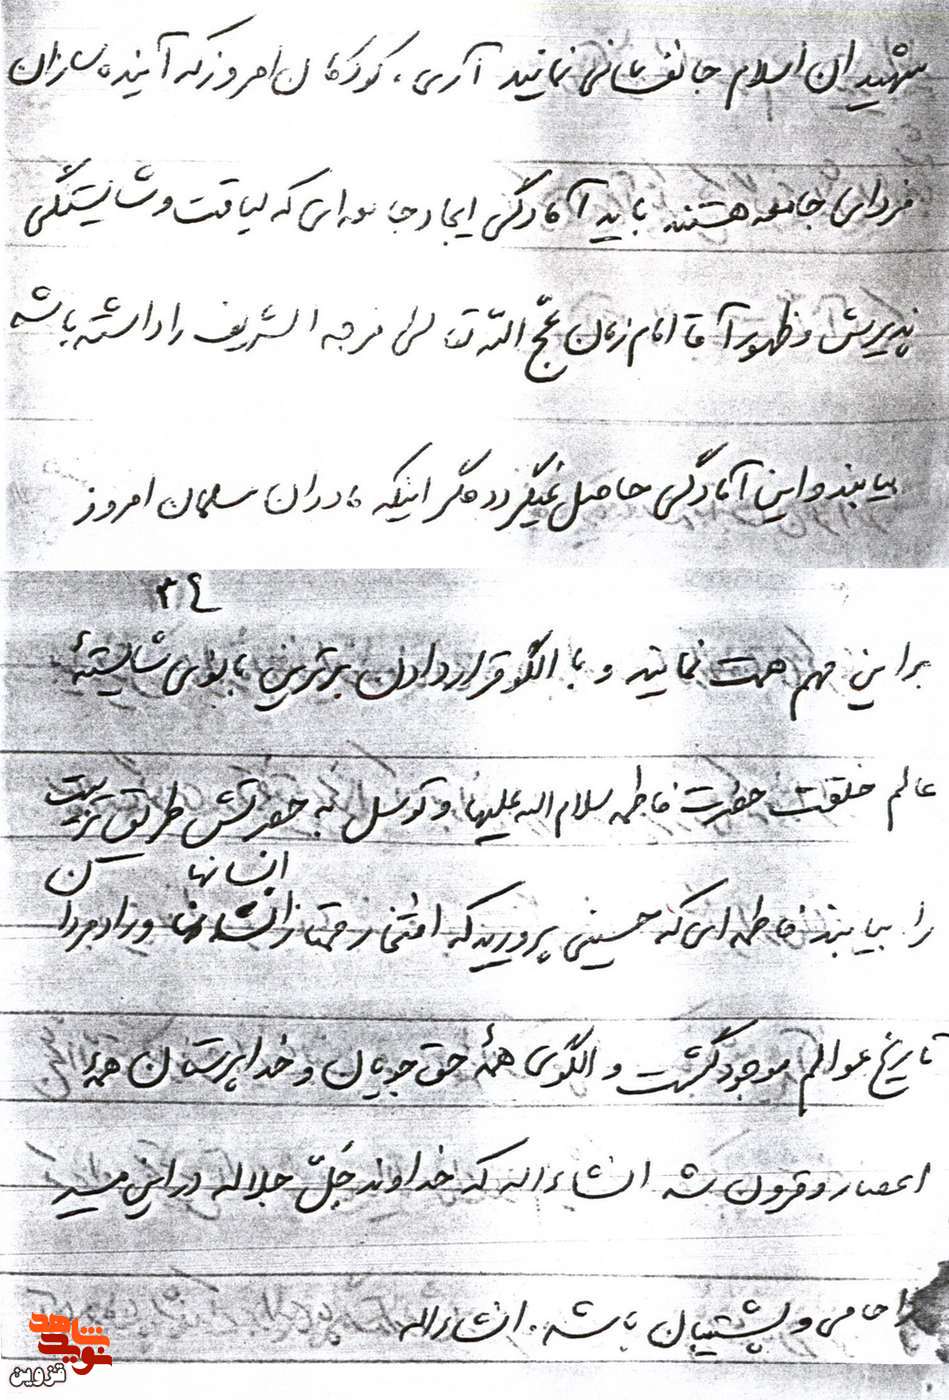 شهیدان اسلام جانفشانی نمایند آری ، کودکان امروز که آینده سازان
فردای جامعه هستند باید آمادگی ایجاد جامعه ای که لیاقت و شایستگی
پذیرش و ظهور آقا امام زمان عجّ اللّه تعالی فرجه الشریف را داشته باشد
بیابند و این آمادگی حاصل نمیگردد مگر اینکه مادران مسلمان امروز
۳٤
بر این مهم همت نمایند و با الگو قرار دادن برترین بانوی شایستهٔ
عالم خلقت حضرت فاطمه سلام اله علیها و توسل به حضرتش طریق تربیت
انسانها
را بیابند فاطمه ای که حسینی پرورید که افتخار ممتاز و راد مردا
تاریخ عوالم موجود گشت و الگوی همهٔ حق جویان و خداپرستان همهٔ
اعصار و قرون شد انشاءاله که خداوند جَلّ جلاله در این مسیر
ما حامی و پشتیبان باشد . انشاءاله
نوید شاهد
قزوین